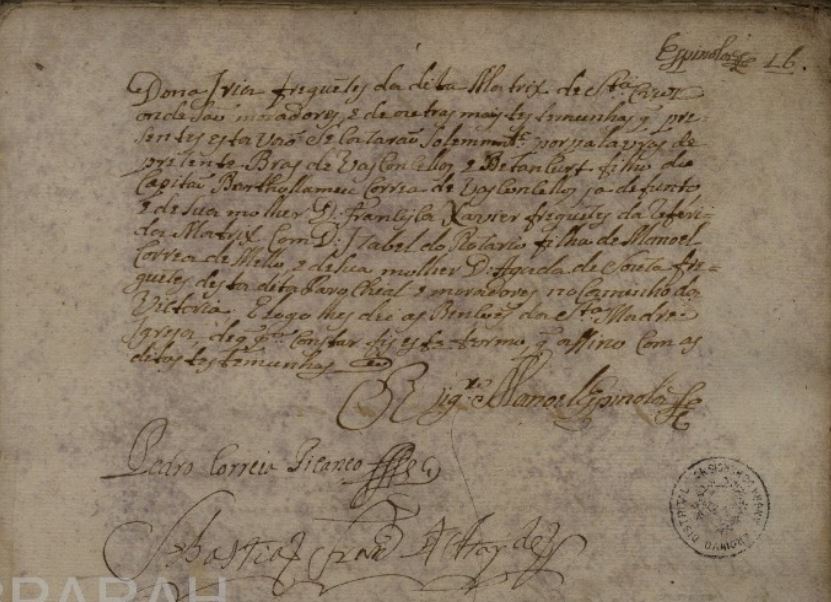 Espinola 16.
Dona Iria freguêses da dita Matrix de Sta. Cruz
onde são moradores, e de outras mais testemunhas q pre-
sentes estavão Se Cazarão Solemmte. por palavras de
prezente Bras de Vasconcellos e Betancurt filho do
Capitão Barthollameu Correa de Vasconcellos ja defunto
e de Sua molher D. Francisca Xavier freguezes da referi-
da Matrix Com D. Izabel do Rozario filha de Manoel
Correa de Mello, e de sua molher D. Agada de Souza fre-
guezes desta dita Parochial e moradores no Caminho da
Victoria. E logo lhes dei as Bençoẽs da Sta. Madre
Igreja, de q pa. Constar fis este termo, q assino Com as
ditas testemunhas
O Vigro. Manoel Espinola
Pedro Correia Picanço
Sebastiaõ Attayde
BPARAH